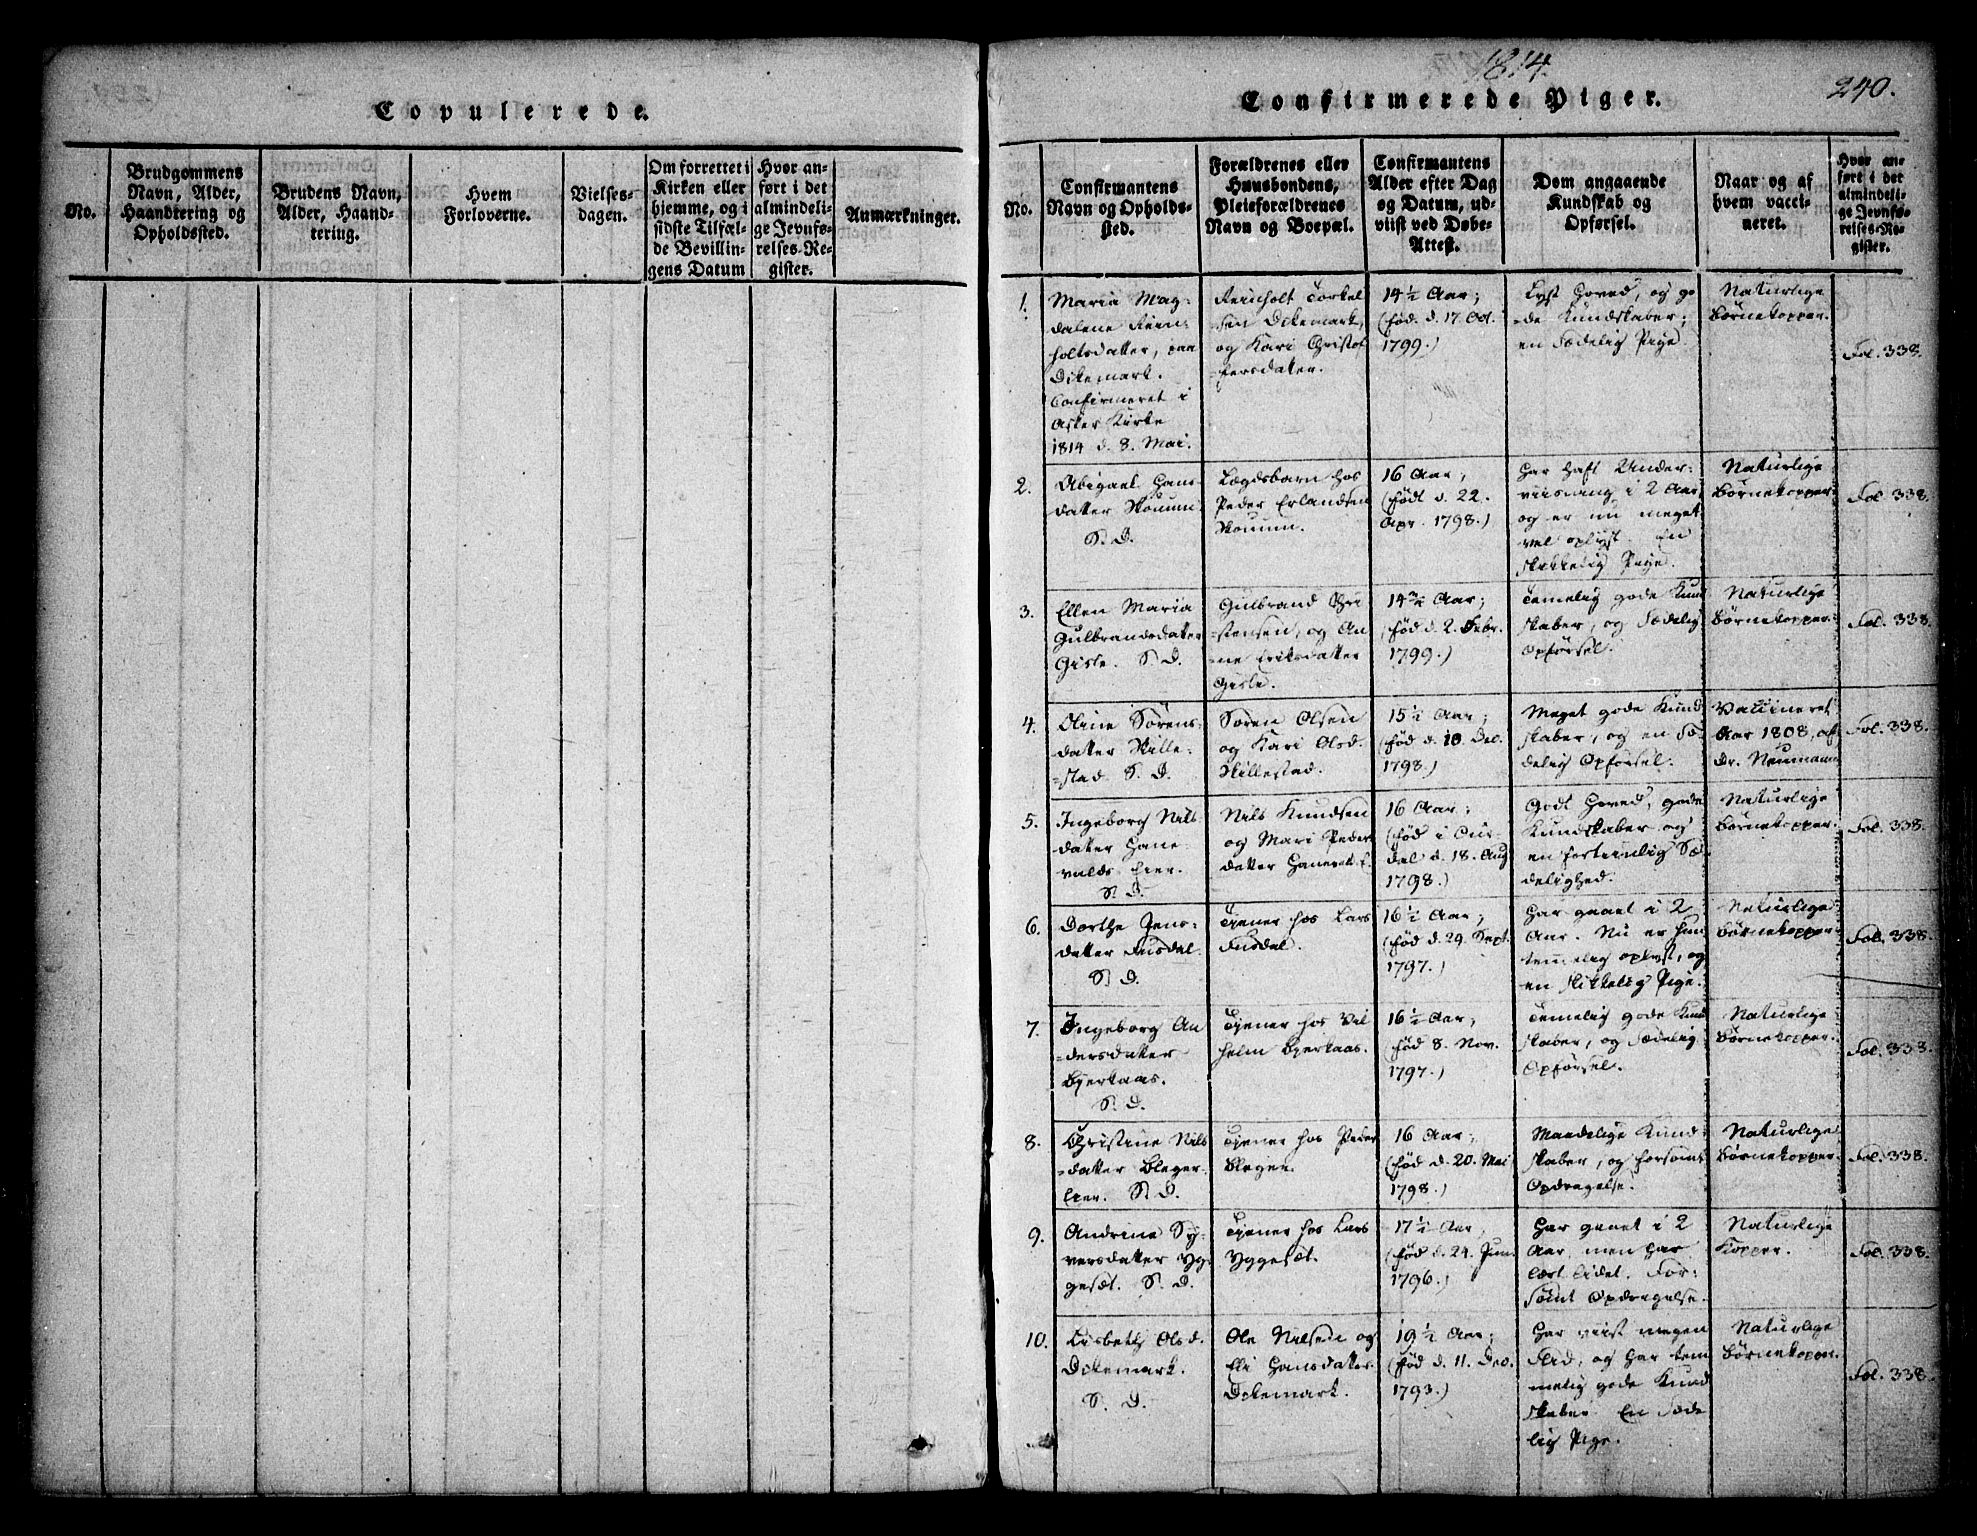 Copulerede.
No.
Brudgommens
Navn, Alder,
Haandtering og
Opholdssted.
Brudens Navn,
Alder, Haand-
tering.
Hvem
Forloverne.
Vielses-
dagen.
Om forrettet i
Kirken eller
hjemme, og i
sidste Tilfæl-
de Bevillin-
gens Datum
Hvor an-
ført i det
almindeli-
ge Jevnfø-
relses-Re-
gister.
Anmærkninger.
1814.
Confirmerede Piger.
240.
No.
Confirmantens
Navn og Opholds-
sted.
Forældrenes eller
Huusbondens,
Pleieforældrenes
Navn og Boepæl.
Confirmantens
Alder efter Dag
og Datum, ud-
viist ved Døbe-
Attest.
Dom angaaende
Kundskab og
Opførsel.
Naar og af
hvem vacci-
neret.
Hvor an-
ført i det
almindeli-
ge Jevnfø-
relses-Re-
gister.
1.
Maria Mag-
dalene Rein-
holtsdatter, paa
Dikemark.
Confirmeret i
Asker Kirke
1814 d. 8. Mai.
Reinholt Torkel
sen Dikemark,
og Kari Christof
=fersdatter.
14½ Aar;
(fød. d. 17. Oct.
1799.)
Lyst Hoved, og go
=de Kundskaber;
en sædelig Pige.
Naturlige
Børnekopper.
Fol. 338.
2.
Abigael Hans
datter Skoum
S. D.
Lægdsbarn hos
Peder Erlandsen
Skoum.
16 Aar;
(født d. 22.
Apr. 1798.)
Har haft Under-
viisning i 2 Aar,
og er nu meget
vel oplyst. En
skikkelig Pige.
Naturlige
Børnekopper.
Fol. 338.
3.
Ellen Maria
Gulbrandsdatter
Gisle. S. D.
Gulbrand Chri
=stensen, og An
=ne Eriksdatter
Gisle.
14¾ Aar;
(fød d. 2. Febr.
1799.)
Temelig gode Kund
skaber, og sædelig
Opførsel.
Naturlige
Børnekopper.
Fol. 338.
4.
Oline Sørens-
datter Skille-
=stad. S. D.
Søren Olsen
og Kari Olsd.
Skillestad.
15½ Aar;
(fød d. 10. Dec.
1798.)
Meget gode Kund
skaber, og en Sæ-
delig Opførsel.
Vaccineret
Aar 1808, af
Dr. Neumann
Fol. 338.
5.
Ingeborg Nils
datter Hane-
valds Eier.
S. D.
Nils Knudsen
og Mari Peders
datter
16 Aar;
(fød i
dal d. 18. Aug
1798.)
Godt Hoved, gode
Kundskaber og
en fortrinlig Sæ-
delighed.
Naturlige
Børnekopper.
Fol. 338.
6.
Dorthe Jens-
datter Fusdal.
S. D.
Tjener hos Lars
Fusdal.
16½ Aar;
(fød d. 29. Sept.
1797.)
Har gaaet i 2
Aar. Nu er hun
temelig oplyst, og
en skikkelig Pige.
Naturlige
Børnekopper.
Fol. 338.
7.
Ingeborg An
=dersdatter
Bjerkaas.
S. D.
Tjener hos Vil
helm Bjerkaas.
16½ Aar;
(fød 8. Nov.
1797.)
Temelig gode Kund
skaber, og sædelig
Opførsel.
Naturlige
Børnekopper.
Fol. 338.
8.
Christine Nils
=datter Bleger
Eier. S. D.
Tjener hos Peder
Blegen.
16 Aar;
(fød d. 20. Mai
1798.)
Maadelige Kund-
skaber, og forsømt
Opdragelse.
Naturlige
Børnekopper.
Fol. 338.
9.
Andrine Sy-
versdatter Yg-
gesæt. S. D.
Tjener hos Lars
Yggesæt.
17½ Aar;
(fød d. 24. Jun.
1796.)
Har gaaet i 2
Aar, men har
lært lidet. For-
sømt Opdragelse.
Naturlige
Kopper.
Fol. 338.
10.
Lisbeth Olsd.
Dikemark.
S. D.
Ole Nilsen og
Eli Hansdatter
Dikemark.
19½ Aar;
(fød d. 11. Dec.
1793.)
Har viist megen
Flid, og har tem
melig gode Kund
skaber. En sæde
lig Pige.
Naturlige
Børnekopper.
Fol. 338.